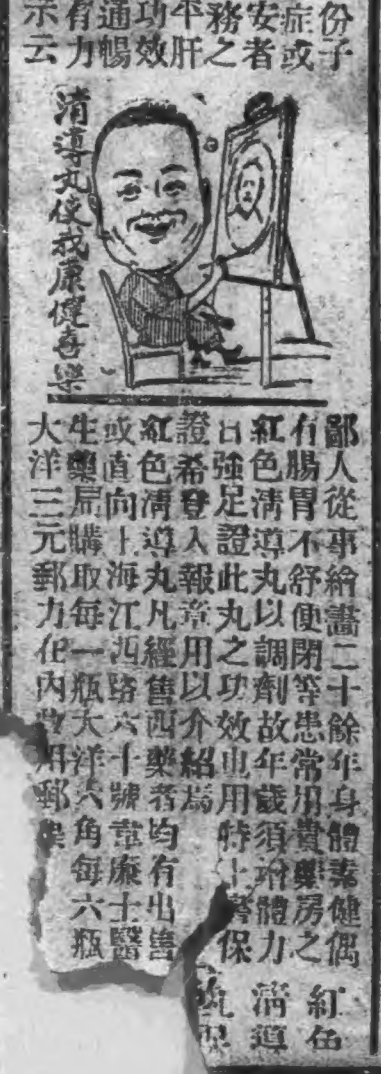 份子
症或
安者
務之
平肝
功效
通暢
有力
示云
清導丸使我康健喜樂
鄙人從事繪畫二十餘年身體素健偶
有腸胃不舒便閉等患常用貴藥房之
紅色清導丸以調劑故年歲須增體力
日強足證此丸之功效也用特上書保
證希登入報章用以介紹焉
紅色清導丸凡經售西藥者均有出售
或直向上海江西路六十號韋廉士醫
生藥局購取每一瓶大洋六角每六瓶
大洋三元郵力在內 用郵
紅色
清導
丸